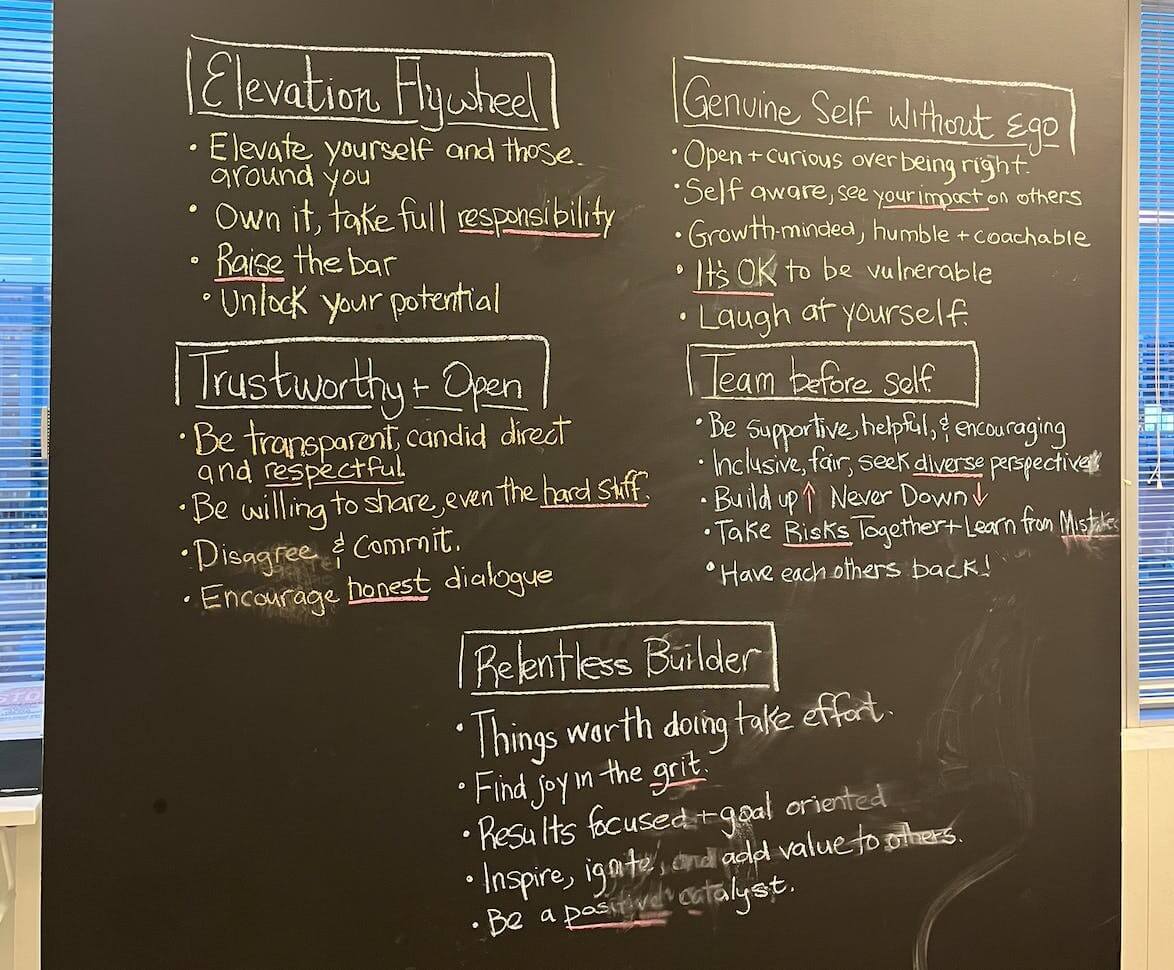 Elevation Flywheel
• Elevate yourself and those
around you
• Own it, take full responsibility
• Raise the bar
• Unlock your potential
Genuine Self Without Ego
• Open + curious over being right.
• Self aware, see your impact on others
• Growth-minded, humble + coachable
• It's OK to be vulnerable
• Laugh at yourself.
Trustworthy + Open
• Be transparent, candid direct
and respectful
• Be willing to share, even the hard stuff.
• Disagree & Commit.
• Encourage honest dialogue
Team before self
• Be supportive, helpful, & encouraging
• Inclusive, fair, seek diverse perspective
• Build up ↑ Never Down ↓
• Take Risks Together + Learn from Mistakes
• Have each others back!
Relentless Builder
• Things worth doing take effort.
• Find joy in the grit.
• Results focused + goal oriented
• Inspire, ignite, and add value to others.
• Be a positive catalyst.